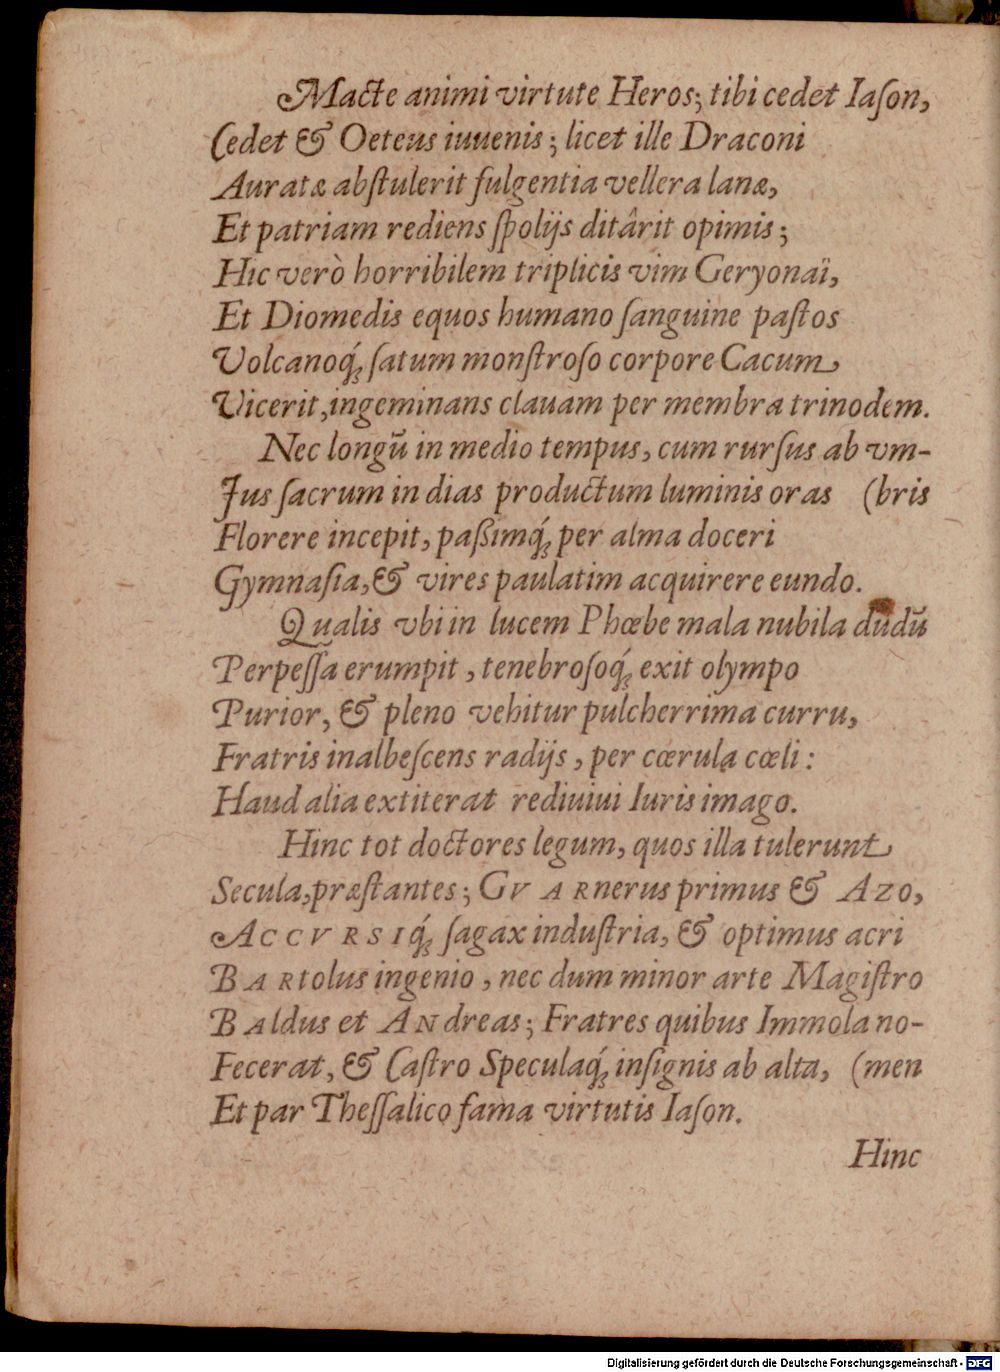 Macte animi virtute Heros; tibi cedet Iaſon,
Cedet & Oeteus iuuenis; licet ille Draconi
Auratæ abſtulerit fulgentia vellera lanæ,
Et patriam rediens ſpolijs ditârit opimis;
Hic verò horribilem triplicis vim Geryonaï,
Et Diomedis equos humano ſanguine paſtos
Volcanoq́ꝫ ſatum monſtroſo corpore Cacum
Vicerit, ingeminans clauam per membra trinodem.
Nec longũ in medio tempus, cum rurſus ab vm-
Jus ſacrum in dias productum luminis oras (bris
Florere incepit, paßimq́ꝫ per alma doceri
Gymnaſia, & vires paulatim acquirere eundo.
Qualis vbi in lucem Phœbe mala nubila dudũ
Perpeſſa erumpit, tenebroſoq́ꝫ exit olympo
Purior, & pleno vehitur pulcherrima curru,
Fratris inalbeſcens radijs, per cœrula cœli:
Haud alia extiterat rediuiui Iuris imago.
Hinc tot doctores legum, quos illa tulerunt
Secula, præſtantes; GVARnerus primus & AZO,
ACCVRSIq́ꝫ ſagax induſtria, & optimus acri
BARtolus ingenio, nec dum minor arte Magiſtro
BAldus et ANdreas; Fratres quibus Immola no-
Fecerat, & Caſtro Speculaq́ꝫ inſignis ab alta, (men
Et par Theſſalico fama virtutis Iaſon.
Hinc
Digitalisierung gefördert durch die Deutsche Forschungsgemeinschaft - DFG